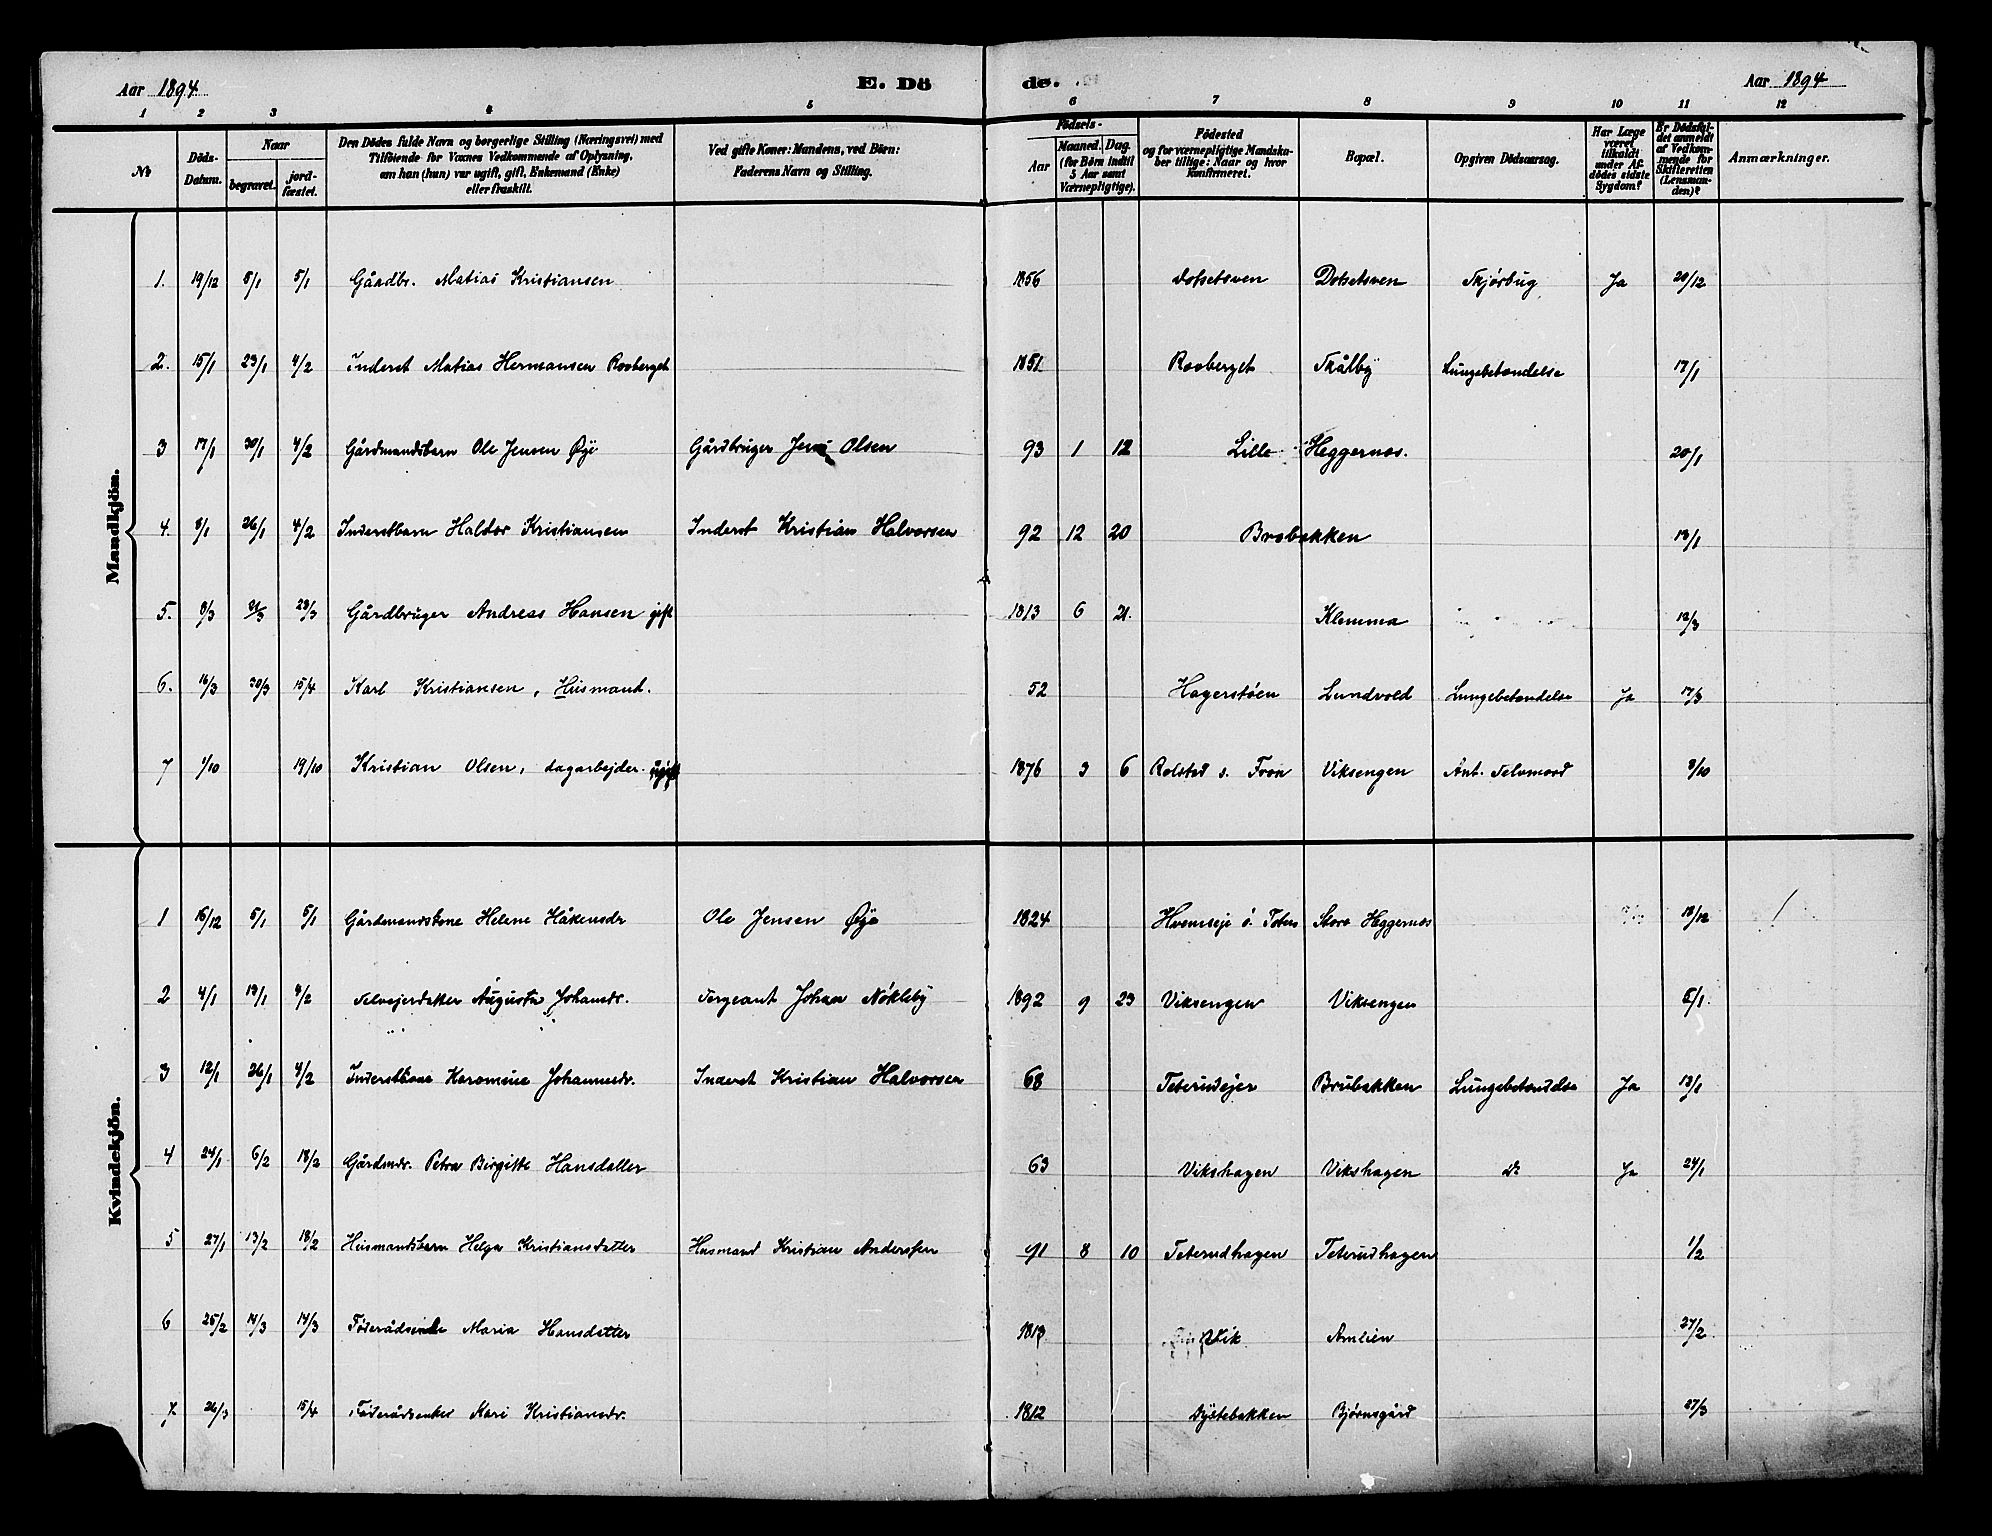 Aar 1894. E. Dö de. Aar 1894
1 2 3 4 5 6 7 8 9 10 11 12
No
Döds-Datum.
Naar
begravet. jord-fæstet.
Den Dödes fulde Navn og borgerlige Stilling (Næringsvei) med
Tilföiende for Voxnes Vedkommende af Oplysning,
om han (hun) var ugift, gift, Enkemand (Enke)
eller fraskilt.
Ved gifte Koner: Mandens, ved Börn:
Faderens Navn og Stilling.
Födsels-
Aar Maaned. Dag.
(for Börn indtil
5 Aar samt
Værnepligtige).
Födested
og for værnepligtige Mandska-
ber tillige: Naar og hvor
konfirmeret.
Bopæl.
Opgiven Dödsaarsag.
Har Læge
været
tilkaldt
under Af-
dödes sidste
Sygdom?
Er Dödsfal-
det anmeldt
af Vedkom-
mende for
Skifteretten
(Lensman-
den)?
Anmærkninger.
Mandkjön.
1. 19/12 5/1 5/1 Gåardbr. Matias Kristiansen 1856 Dotsetsven Dotsetsven Skjørbug Ja 20/12
2. 15/1 23/1 4/2 Inderst Matias Hermansen Rovberget 1851 Rovberget Skålby Lungebetændelse 17/1
3 17/1 30/1 4/2 Gårdmandsbarn Ole Jensen Øye Gårdbruger Jens Olsen 93 1 12 Lille Heggernes.  20/1
4. 8/1 26/1 4/2 Inderstbarn Haldor Kristiansen Inderst Kristian Halvorsen 92 12 20 Brobakken 13/1
5. 8/3 21/3 23/3 Gårdbruger Andreas Hansen gift 1813 6 21. Klemma 12/3
6. 16/3 30/3 15/4 Karl Kristiansen, Husmand. 52 Hagerstøen Lundvold Lungebetændelse Ja 17/3
7 1/10 19/10 Kristian Olsen, dagarbejder. ugift 1876 3 6 Rolstad s. Fron Viksengen Ant. Selvmord 8/10
Kvindekjön.
1 16/12 5/1 5/1 Gårdmandskone Helene Håkensdr Ole Jensen Øye 1824 Hvemseje ö. Toten Store Heggernes 18/12
2 4/1 13/1 4/2 Selvejerdatter Augusta Johansdr. Sergeant Johan Nøkleby 1892 9 23 Viksengen Viksengen 5/1.
3 12/1 26/1 4/2 Inderstkone Karomine Johannesdr. Inderst Kristian Halvorsen 68 Teterudejer Brubakken Lungebetændelse Ja 13/1
4 24/1 6/2 18/2 Gårdmdr. Petra Birgitte Hansdatter 63 Vikshagen Vikshagen Do Ja 24/1
5 27/1 13/2 18/2 Husmandsbarn Helga Kristiansdatter Husmand Kristian Anderssen 91 8 10 Teterudhagen Teterudhagen 1/2
6 25/2 14/3 14/3 Føderådsenke Maria Hansdatter 1813 Vik Amlien 27/2
7. 26/3 15/4 Føderådsenke Kari Kristiansdr. 1812 Dystebakken Bjørnsgård 27/3